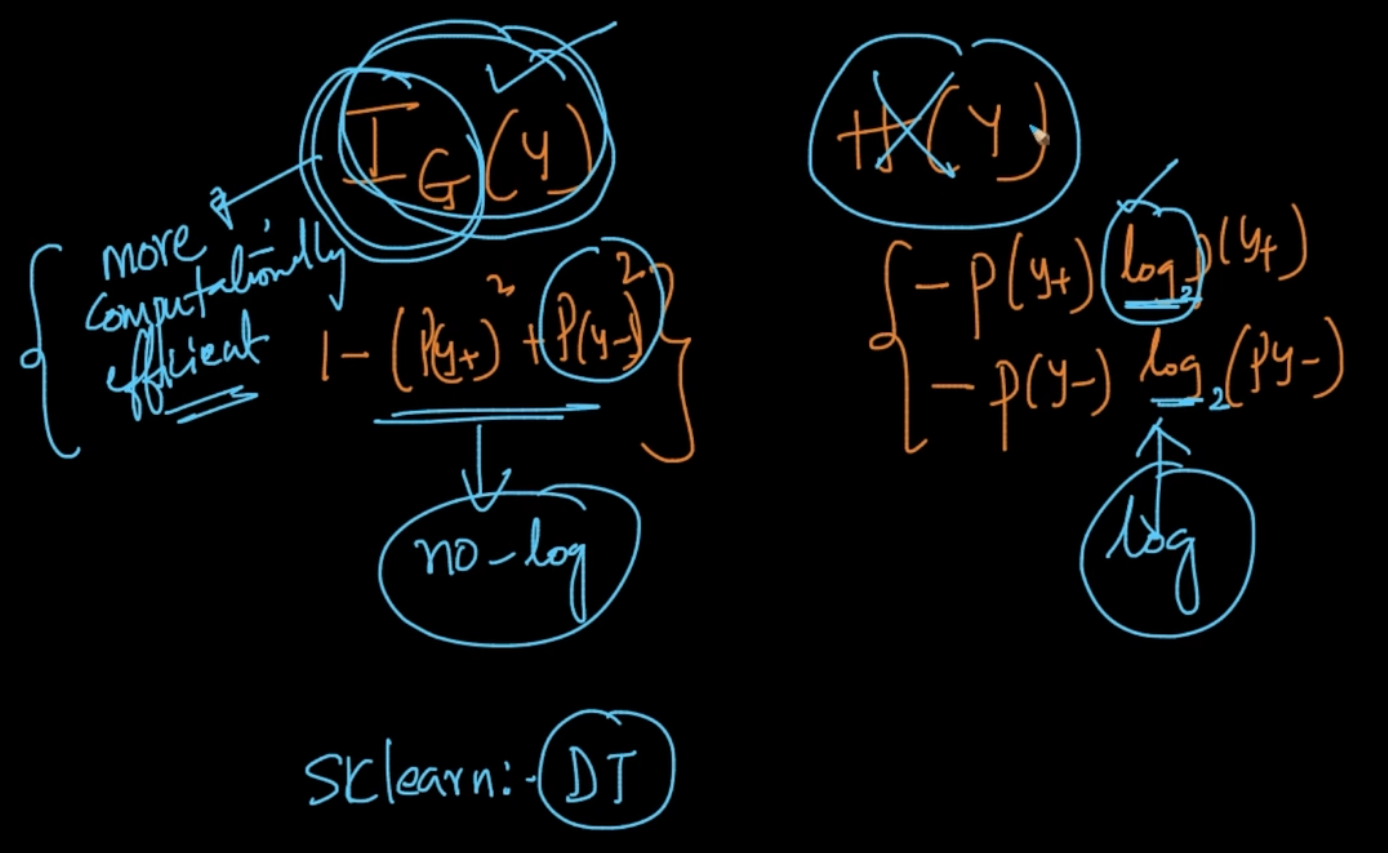 I_G(Y)
H(Y)
more
computationally
efficient
1 - (P(y+)² + P(y-)²)
- P(y+) log₂ P(y+)
- P(y-) log₂ (Py-)
no-log
log
SKlearn:- DT